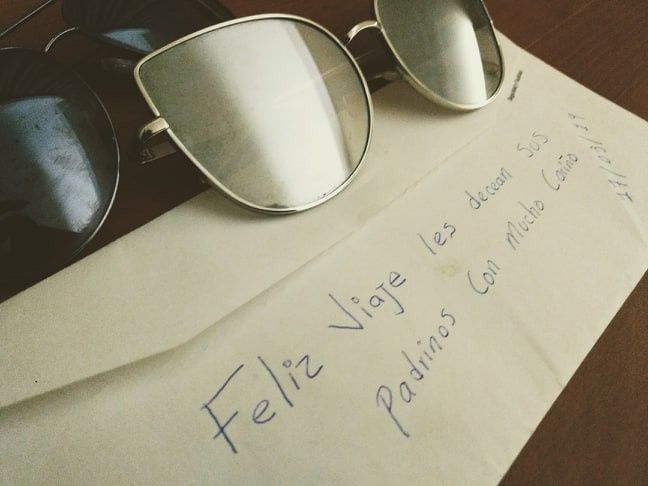 Feliz Viaje les decean sus
Padrinos Con Mucho Cariño
17/03/19